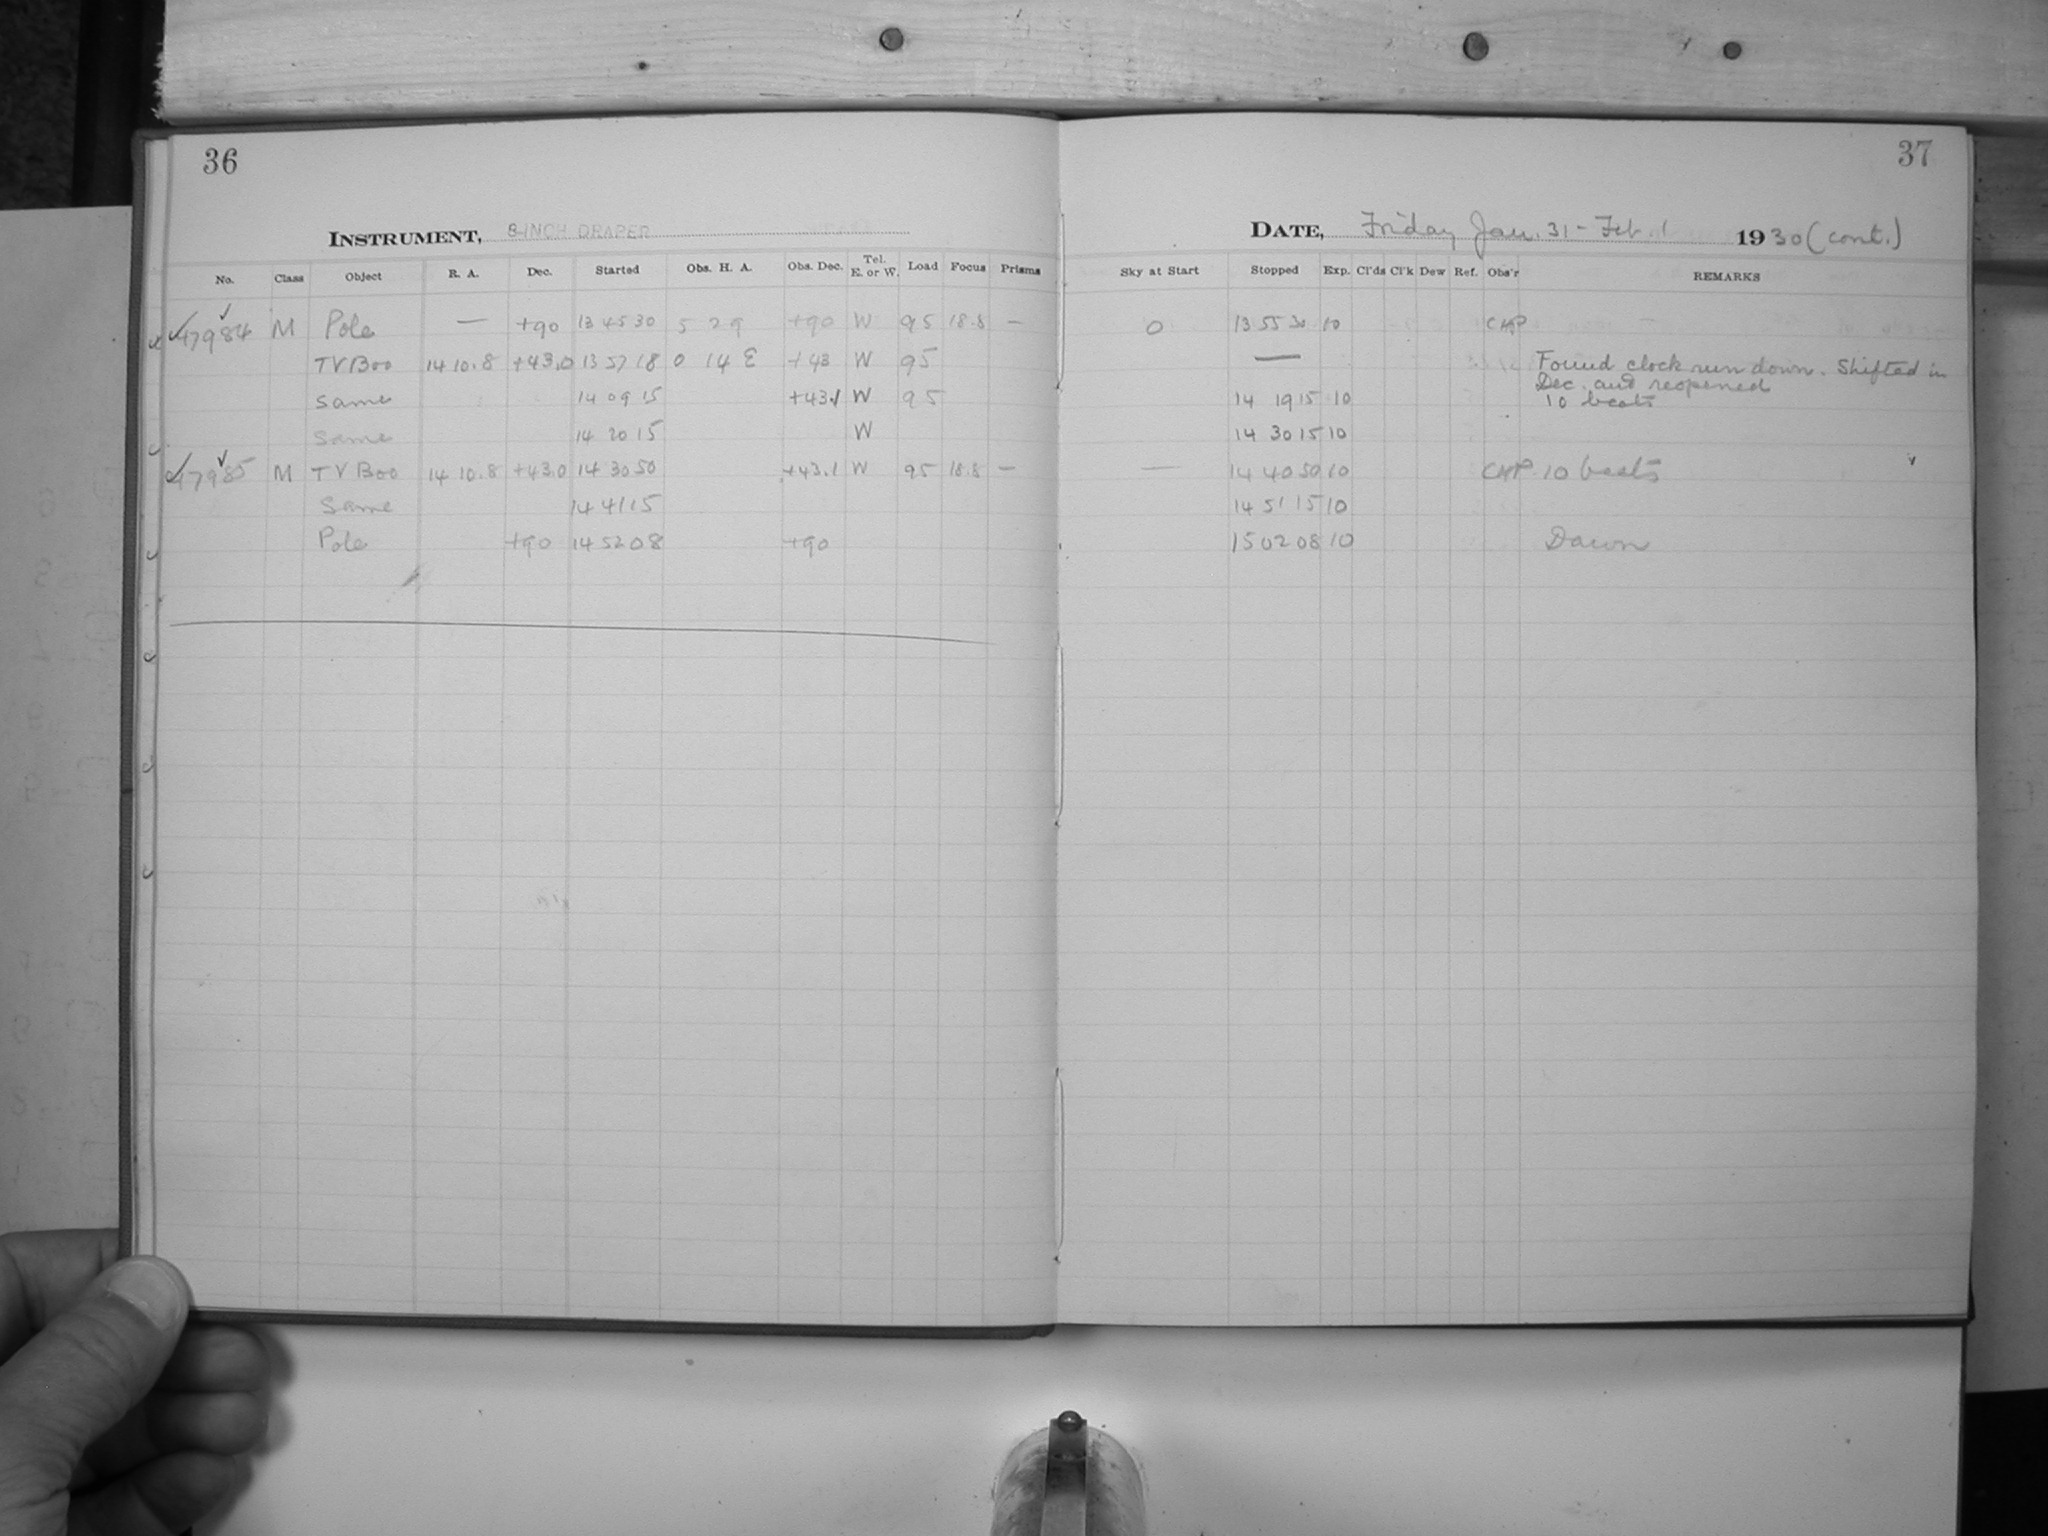 36
INSTRUMENT, 8-INCH DRAPER
No. Class Object R. A. Dec. Started Obs. H. A. Obs. Dec. Tel. E. or W. Load Focus Prisms
47984 M Pole — +90 13 45 30 5 29 +90 W 95 18.8 —
TV Boo 14 10.8 +43.0 13 57 18 0 14 E +43 W 95
Same 14 09 15 +43.1 W 95
Same 14 20 15 W
47985 M TV Boo 14 10.8 +43.0 14 30 50 +43.1 W 95 18.8 —
Same 14 41 15
Pole +90 14 52 08 +90
37
DATE, Friday Jan. 31 - Feb. 1 1930 (cont.)
Sky at Start Stopped Exp. Cl'ds Cl'k Dew Ref. Obs'r REMARKS
0 13 55 30 10 CHP —
— Found clock run down. Shifted in
Dec. and reopened
14 19 15 10 10 beats
14 30 15 10
— 14 40 50 10 CHP 10 beats
14 51 15 10
15 02 08 10 Dawn